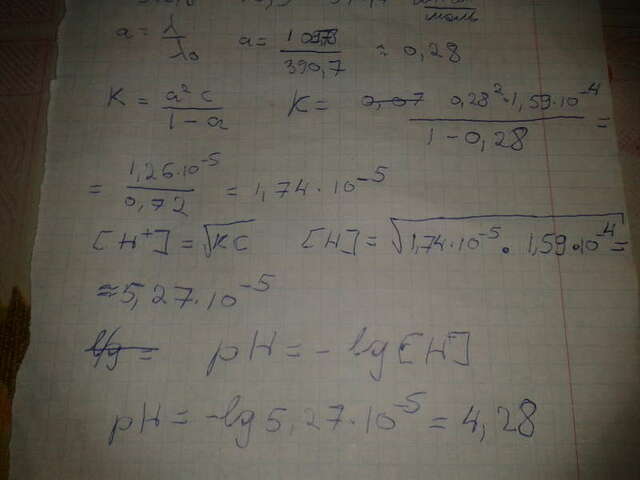 a = λ/λ₀ a = /390,7 ≈ 0,28
K = a²c/1-a K = 0,28²·1,59·10⁻⁴/1-0,28 =
= 1,26·10⁻⁵/0,72 = 1,74·10⁻⁵
[H⁺] = √KC [H] = √1,74·10⁻⁵·1,59·10⁻⁴ =
≈ 5,27·10⁻⁵
pH = -lg[H]
pH = -lg 5,27·10⁻⁵ = 4,28